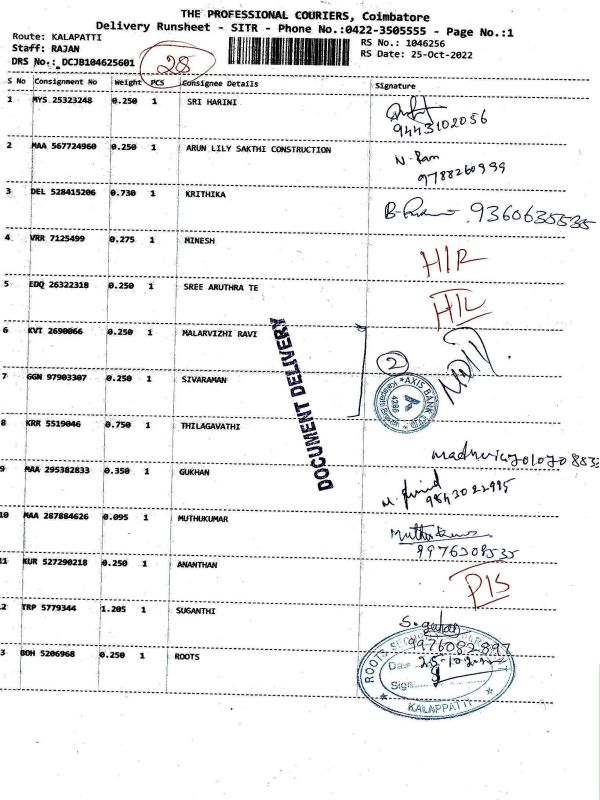 THE PROFESSIONAL COURIERS, Coimbatore
Delivery Runsheet - SITR - Phone No.:0422-3505555 - Page No.:1
Route: KALAPATTI
Staff: RAJAN
DRS No.: DCJB104625601
28
RS No.: 1046256
RS Date: 25-Oct-2022
S No Consignment No Weight PCS Consignee Details Signature
1 MYS 25323248 0.250 1 SRI HARINI
9443102056
2 MAA 567724960 0.250 1 ARUN LILY SAKTHI CONSTRUCTION N. Ram
9788260999
3 DEL 528415206 0.730 1 KRITHIKA 9360635535
4 VRR 7125499 0.275 1 MINESH H/R
5 EDQ 26322318 0.250 1 SREE ARUTHRA TE H/L
6 KVI 2690066 0.250 1 MALARVIZHI RAVI
DOCUMENT DELIVERY
2
7 GGN 97903307 0.250 1 SIVARAMAN
AXIS BANK LTD.
4286
8 KRR 5519046 0.750 1 THILAGAVATHI
9 MAA 295382833 0.350 1 GUKHAN
10 MAA 287884626 0.095 1 MUTHUKUMAR
11 KUR 527290218 0.250 1 ANANTHAN
2 TRP 5779344 1.205 1 SUGANTHI
9976082897
3 BOH 5206968 0.250 1 ROOTS
ROOTS
Date 25-10-2022
Sign
KALAPPATTI